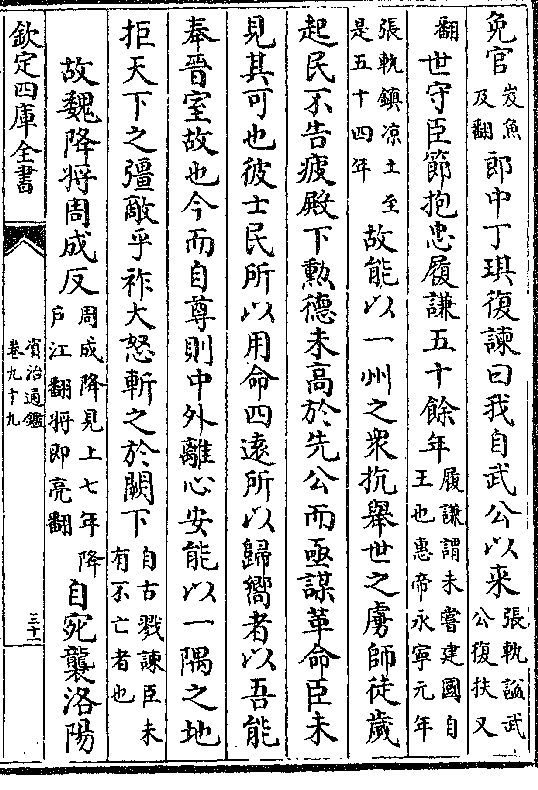 免官岌魚及翻郎中丁琪復諫曰我自武公以来張軌諡武公復扶又
翻世守臣節抱忠履謙五十餘年履謙謂未嘗建國自王也惠帝永寧元年
張軌鎮凉土至是五十四年故能以一州之衆抗舉世之虜師徒歲
起民不告疲殿下勲德未高於先公而亟謀革命臣未
見其可也彼士民所以用命四遠所以歸嚮者以吾能
奉晉室故也今而自尊則中外離心安能以一隅之地
拒天下之彊敵乎祚大怒斬之於闕下自古戮諫臣未有不亡者也
故魏降將周成反周成降見上七年降户江翻將即亮翻自宛襲洛陽
欽定四庫全書
資治通鑑
卷九十九
三十一